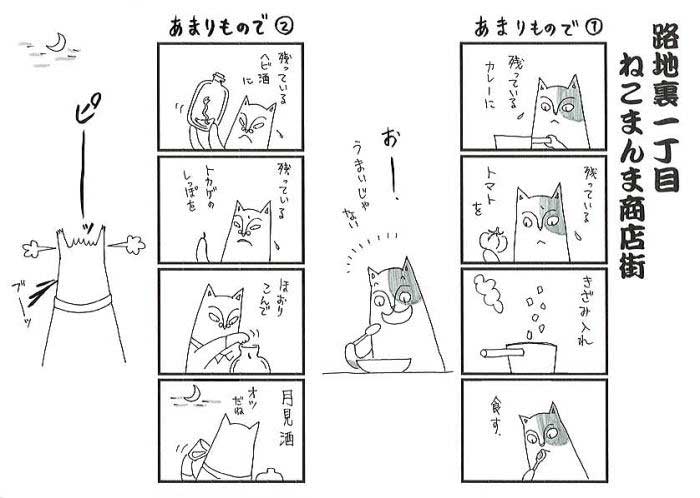 路地裏一丁目
ねこまんま商店街
あまりもので①
残っている
カレーに
残っている
トマト
を
きざみ入れ
食す.
おー!
うまいじゃ
ない
あまりもので②
残っている
ヘビ酒
に
残っている
トカゲの
しっぽを
ほおり
こんで
月見酒
オツ
だね
ピーッ
ブーッ